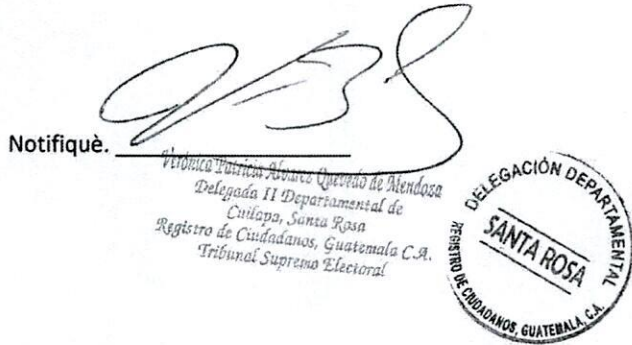 Notifiquè.
Verónica Patricia Alvarez Quevedo de Mendoza
Delegada II Departamental de
Cuilapa, Santa Rosa
Registro de Ciudadanos, Guatemala C.A.
Tribunal Supremo Electoral
DELEGACIÓN DEPARTAMENTAL
SANTA ROSA
REGISTRO DE CIUDADANOS, GUATEMALA, C.A.